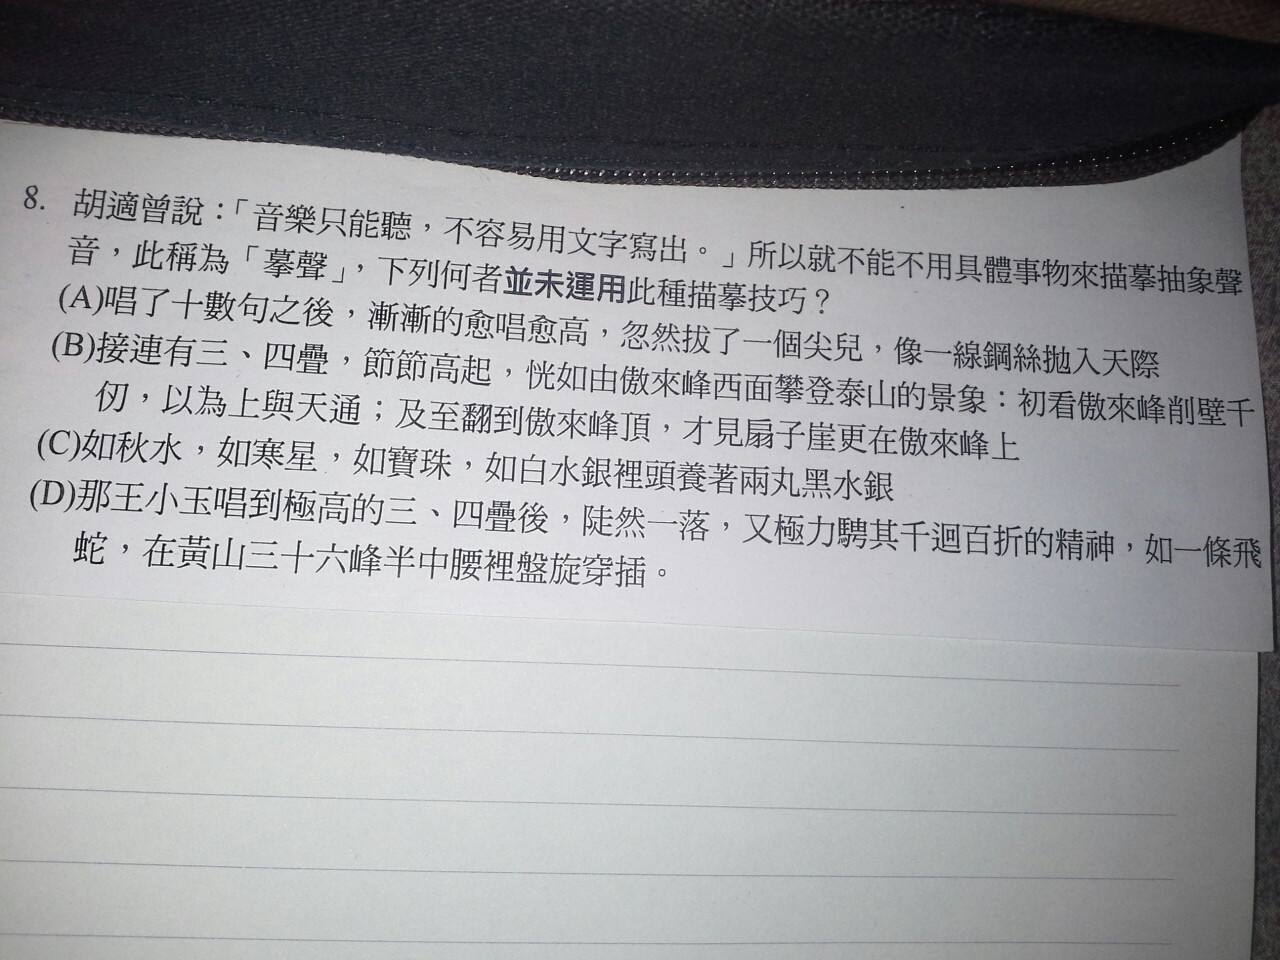 8. 胡適曾說：「音樂只能聽，不容易用文字寫出。」所以就不能不用具體事物來描摹抽象聲
音，此稱為「摹聲」，下列何者並未運用此種描摹技巧？
(A)唱了十數句之後，漸漸的愈唱愈高，忽然拔了一個尖兒，像一線鋼絲拋入天際
(B)接連有三、四疊，節節高起，恍如由傲來峰西面攀登泰山的景象：初看傲來峰削壁千
仞，以為上與天通；及至翻到傲來峰頂，才見扇子崖更在傲來峰上
(C)如秋水，如寒星，如寶珠，如白水銀裡頭養著兩丸黑水銀
(D)那王小玉唱到極高的三、四疊後，陡然一落，又極力騁其千迴百折的精神，如一條飛
蛇，在黃山三十六峰半中腰裡盤旋穿插。